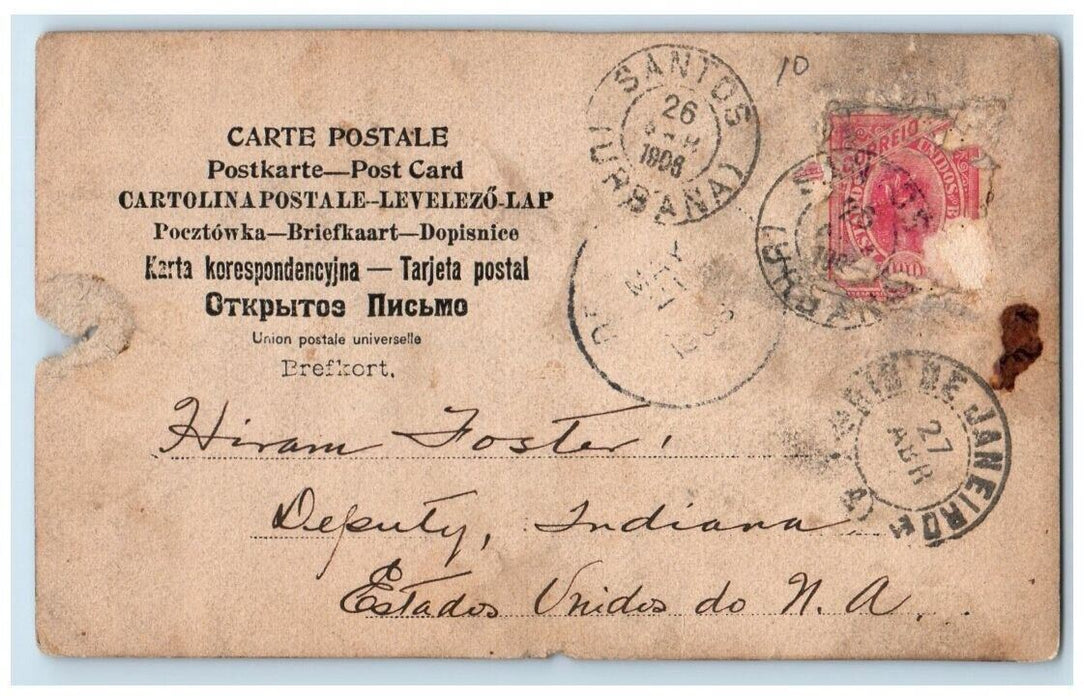 CARTE POSTALE
Postkarte—Post Card
CARTOLINA POSTALE--LEVELEZŐ-LAP
Pocztówka—Briefkaart—Dopisnice
Karta korespondencyjna — Tarjeta postal
Открытоэ Письмо
Union postale universelle
Brefkort.
10
SANTOS
26
ABR
1908
(URBANA)
CORREIO
UNIDOS
SANTOS
MAY
RIO DE JANEIRO
27
ABR
Hiram Foster
Deputy, Indiana
Estados Unidos do N. A.